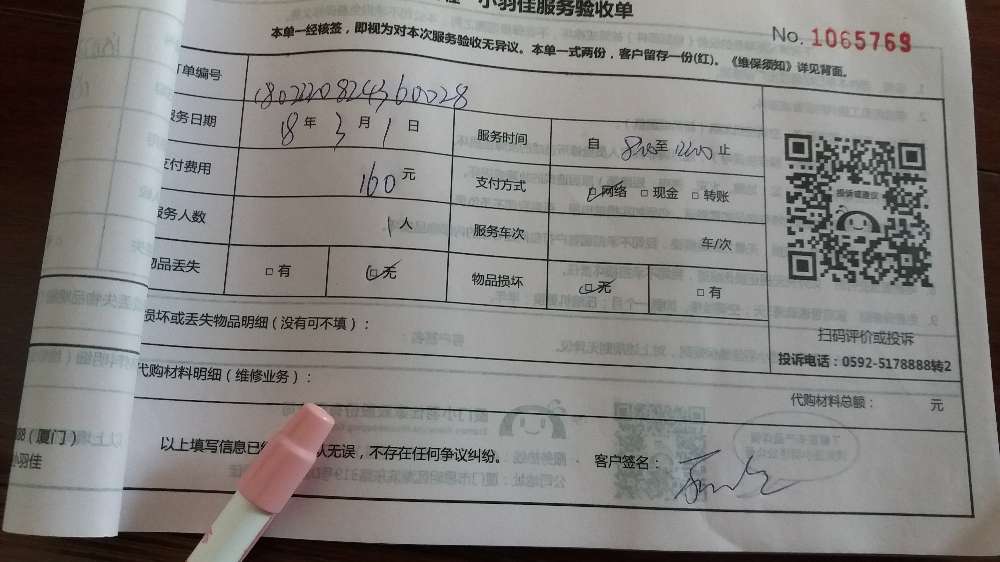 小羽佳服务验收单
本单一经核签，即视为对本次服务验收无异议。本单一式两份，客户留存一份(红)。《维保须知》详见背面。
No. 1065769
订单编号 1802220824360028
服务日期 18 年 3 月 1 日 服务时间 自 8:00 至 12:00 止
支付费用 160 元 支付方式 ☑网络 □现金 □转账
服务人数 1 人 服务车次 车/次
物品丢失 □有 ☑无 物品损坏 ☑无 □有
投诉或建议
扫码评价或投诉
投诉电话：0592-5178888转2
损坏或丢失物品明细（没有可不填）：
代购材料明细（维修业务）：
代购材料总额： 元
以上填写信息已 认无误，不存在任何争议纠纷。 客户签名：
88（厦门）
小羽佳